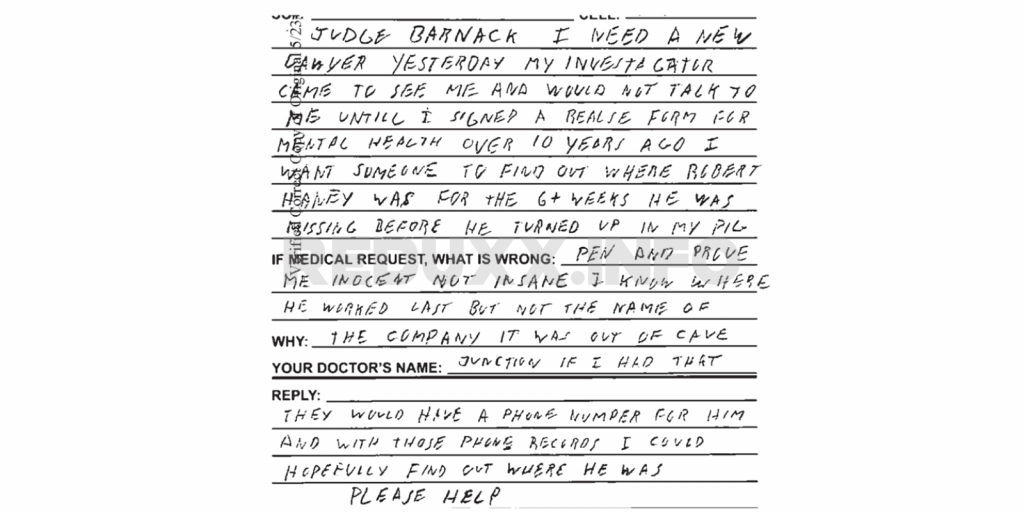 JUDGE BARNACK I NEED A NEW
LAWYER YESTERDAY MY INVESTAGATOR
CAME TO SEE ME AND WOULD NOT TALK TO
ME UNTILL I SIGNED A REALSE FORM FOR
MENTAL HEALTH OVER 10 YEARS AGO I
WANT SOMEONE TO FIND OUT WHERE ROBERT
HANEY WAS FOR THE 6+ WEEKS HE WAS
MISSING BEFORE HE TURNED UP IN MY PIG
IF MEDICAL REQUEST, WHAT IS WRONG: PEN AND PROVE
ME INOCENT NOT INSANE I KNOW WHERE
HE WORKED LAST BUT NOT THE NAME OF
WHY: THE COMPANY IT WAS OUT OF CAVE
YOUR DOCTOR'S NAME: JUNCTION IF I HAD THAT
REPLY:
THEY WOULD HAVE A PHONE NUMPER FOR HIM
AND WITH THOSE PHONE RECORDS I COULD
HOPEFULLY FIND OUT WHERE HE WAS
PLEASE HELP
Verified Correct Copy of Original 5/23
REDUXX.INFO